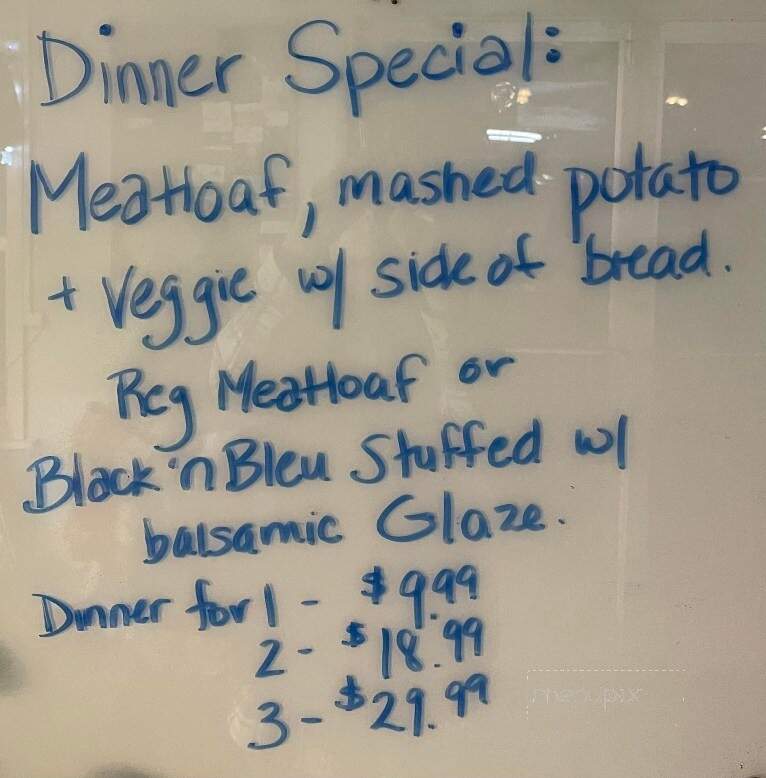 Dinner Special:
Meatloaf, mashed potato
+ Veggie w/ side of bread.
Reg Meatloaf or
Black 'n Bleu Stuffed w/
balsamic Glaze.
Dinner for 1 - $9.99
2 - $18.99
3 - $29.99
menupix